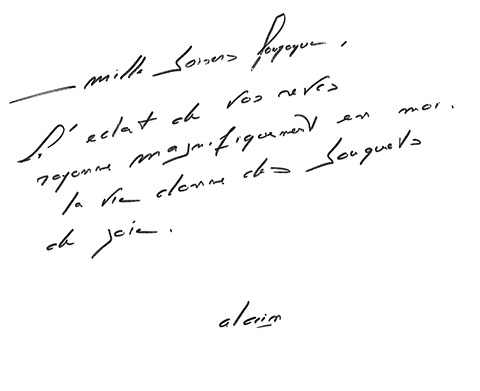 mille baisers
L'éclat de vos rêves
rayonne magnifiquement en moi.
la vie donne des bouquets
de joie.
alain